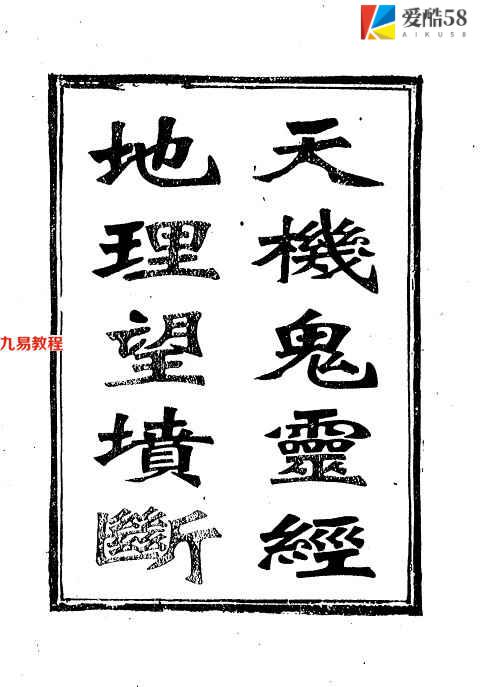 爱酷58
AIKU58
天機鬼靈經
地理望墳斷
九易教程